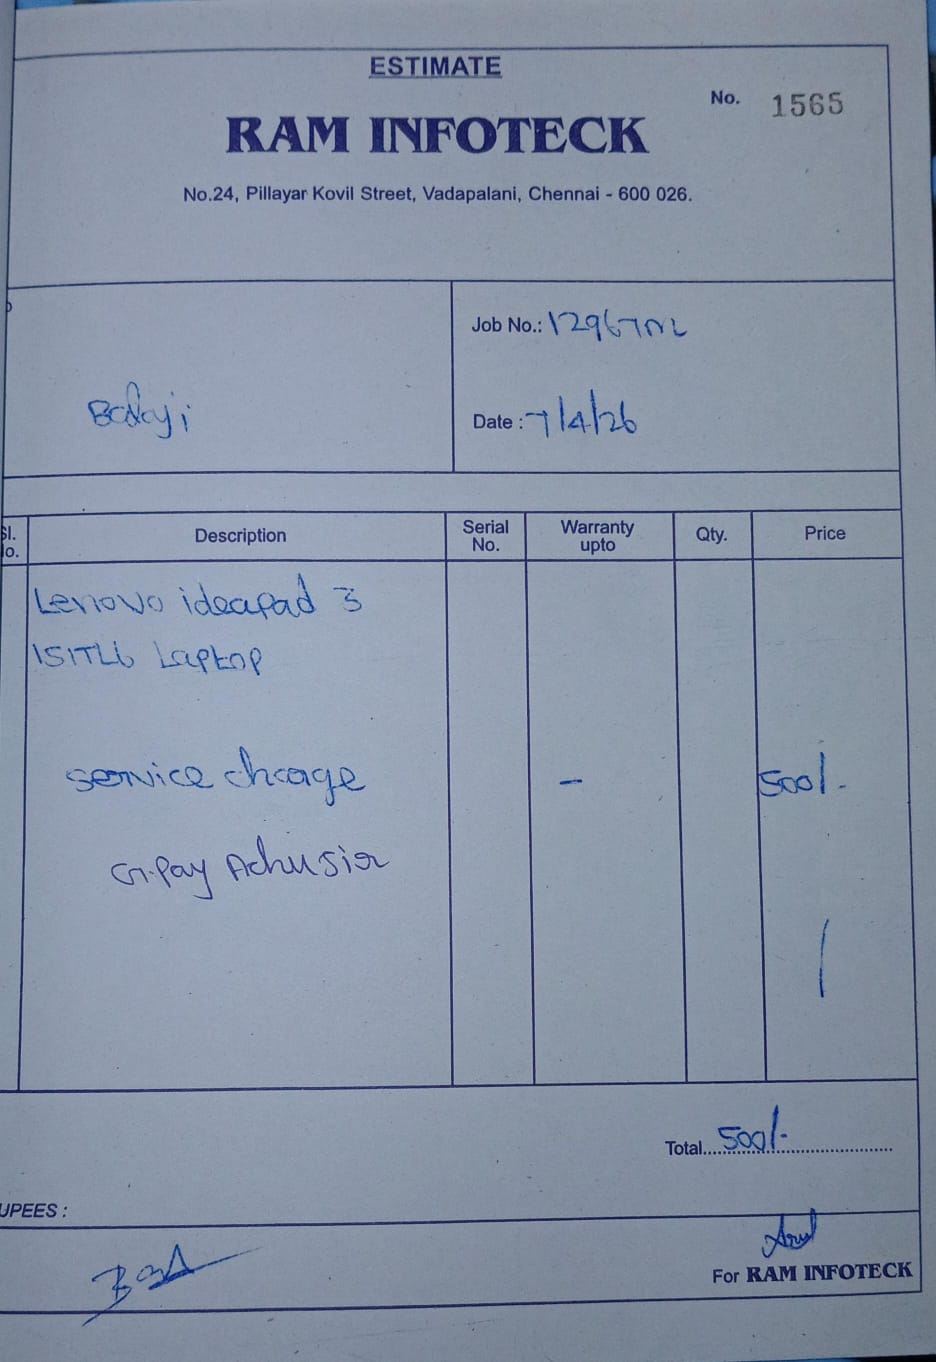 ESTIMATE
No. 1565
RAM INFOTECK
No.24, Pillayar Kovil Street, Vadapalani, Chennai - 600 026.
Balaji
Job No.:
Date : 7/4/26
Description Serial No. Warranty upto Qty. Price
Lenovo ideapad 3
15ITL6 Laptop
service charge - 500/-
G.Pay Achu sir
Total 500/-
UPEES :
For RAM INFOTECK